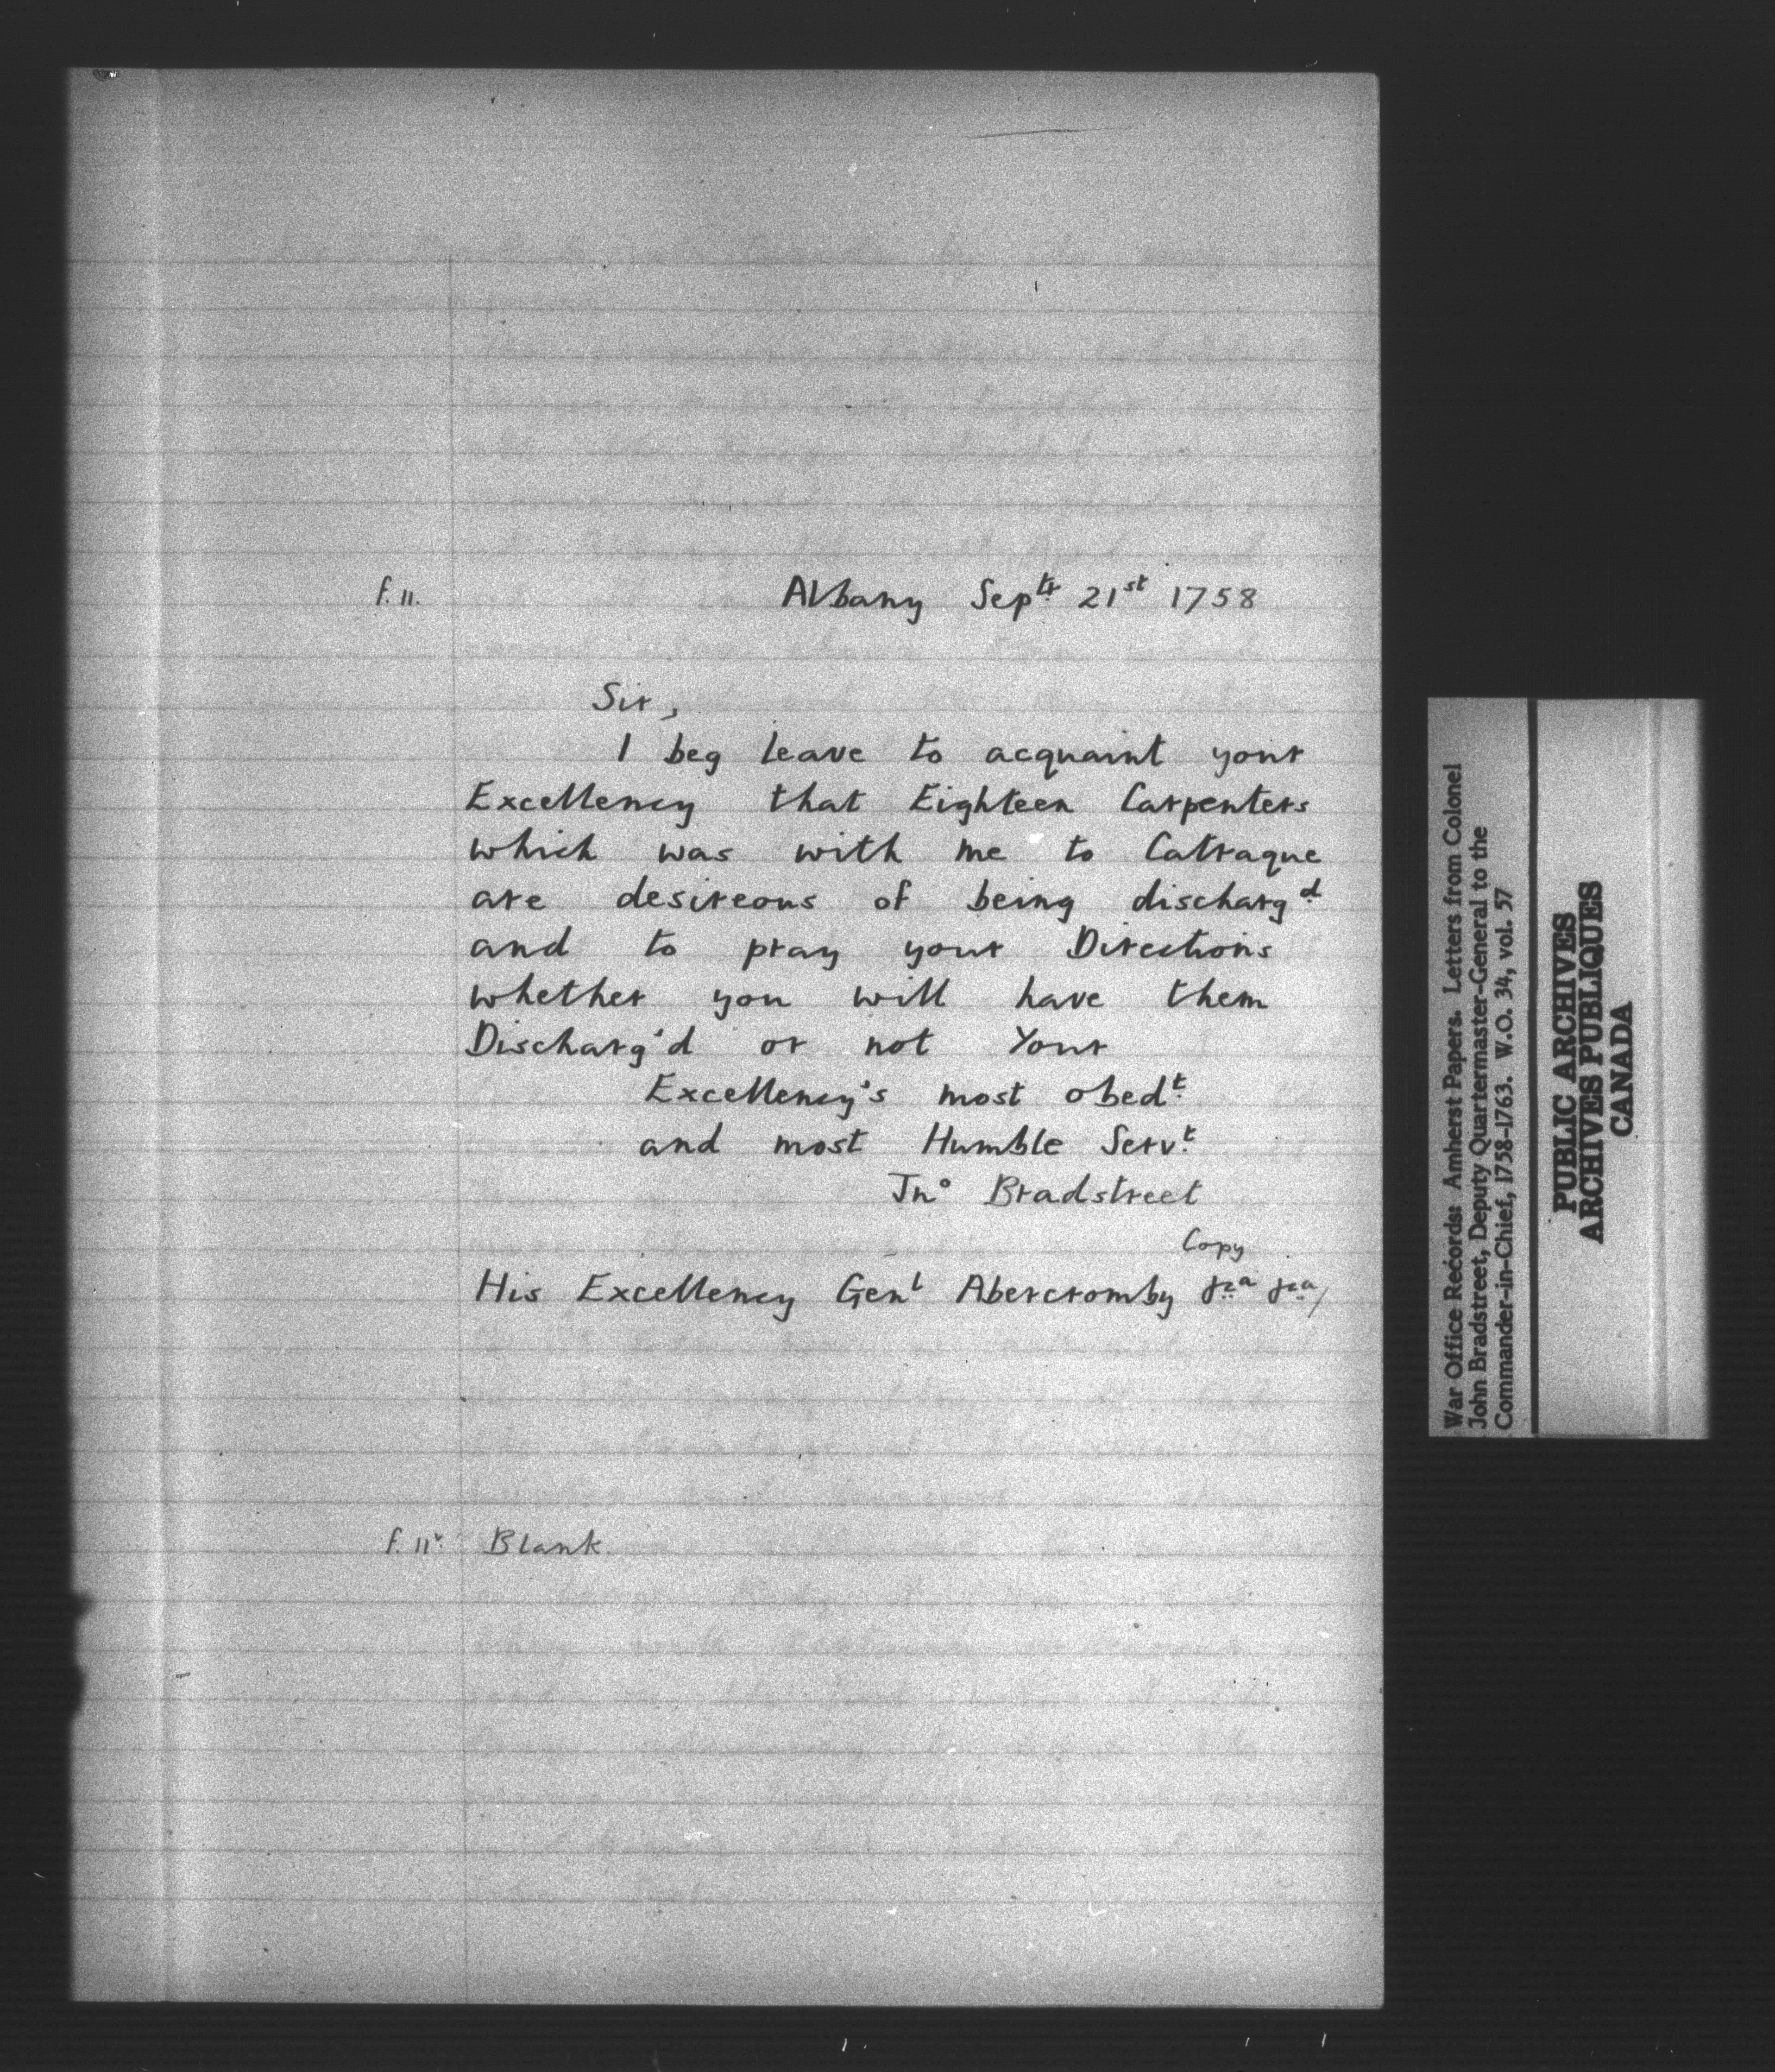 f. 11.
Albany Sept^r 21^st 1758
Sir,
I beg leave to acquaint your
Excellency that Eighteen Carpenters
which was with me to Catraque
are desireous of being discharg^d
and to pray your Directions
whether you will have them
Discharg'd or not Your
Excellency's most obed^t
and most Humble Serv^t
Jn^o Bradstreet
Copy
His Excellency Gen^l Abercromby
f. 11^v. Blank.
War Office Records: Amherst Papers. Letters from Colonel
John Bradstreet, Deputy Quartermaster-General to the
Commander-in-Chief, 1758-1763. W.O. 34, vol. 57
PUBLIC ARCHIVES
ARCHIVES PUBLIQUES
CANADA